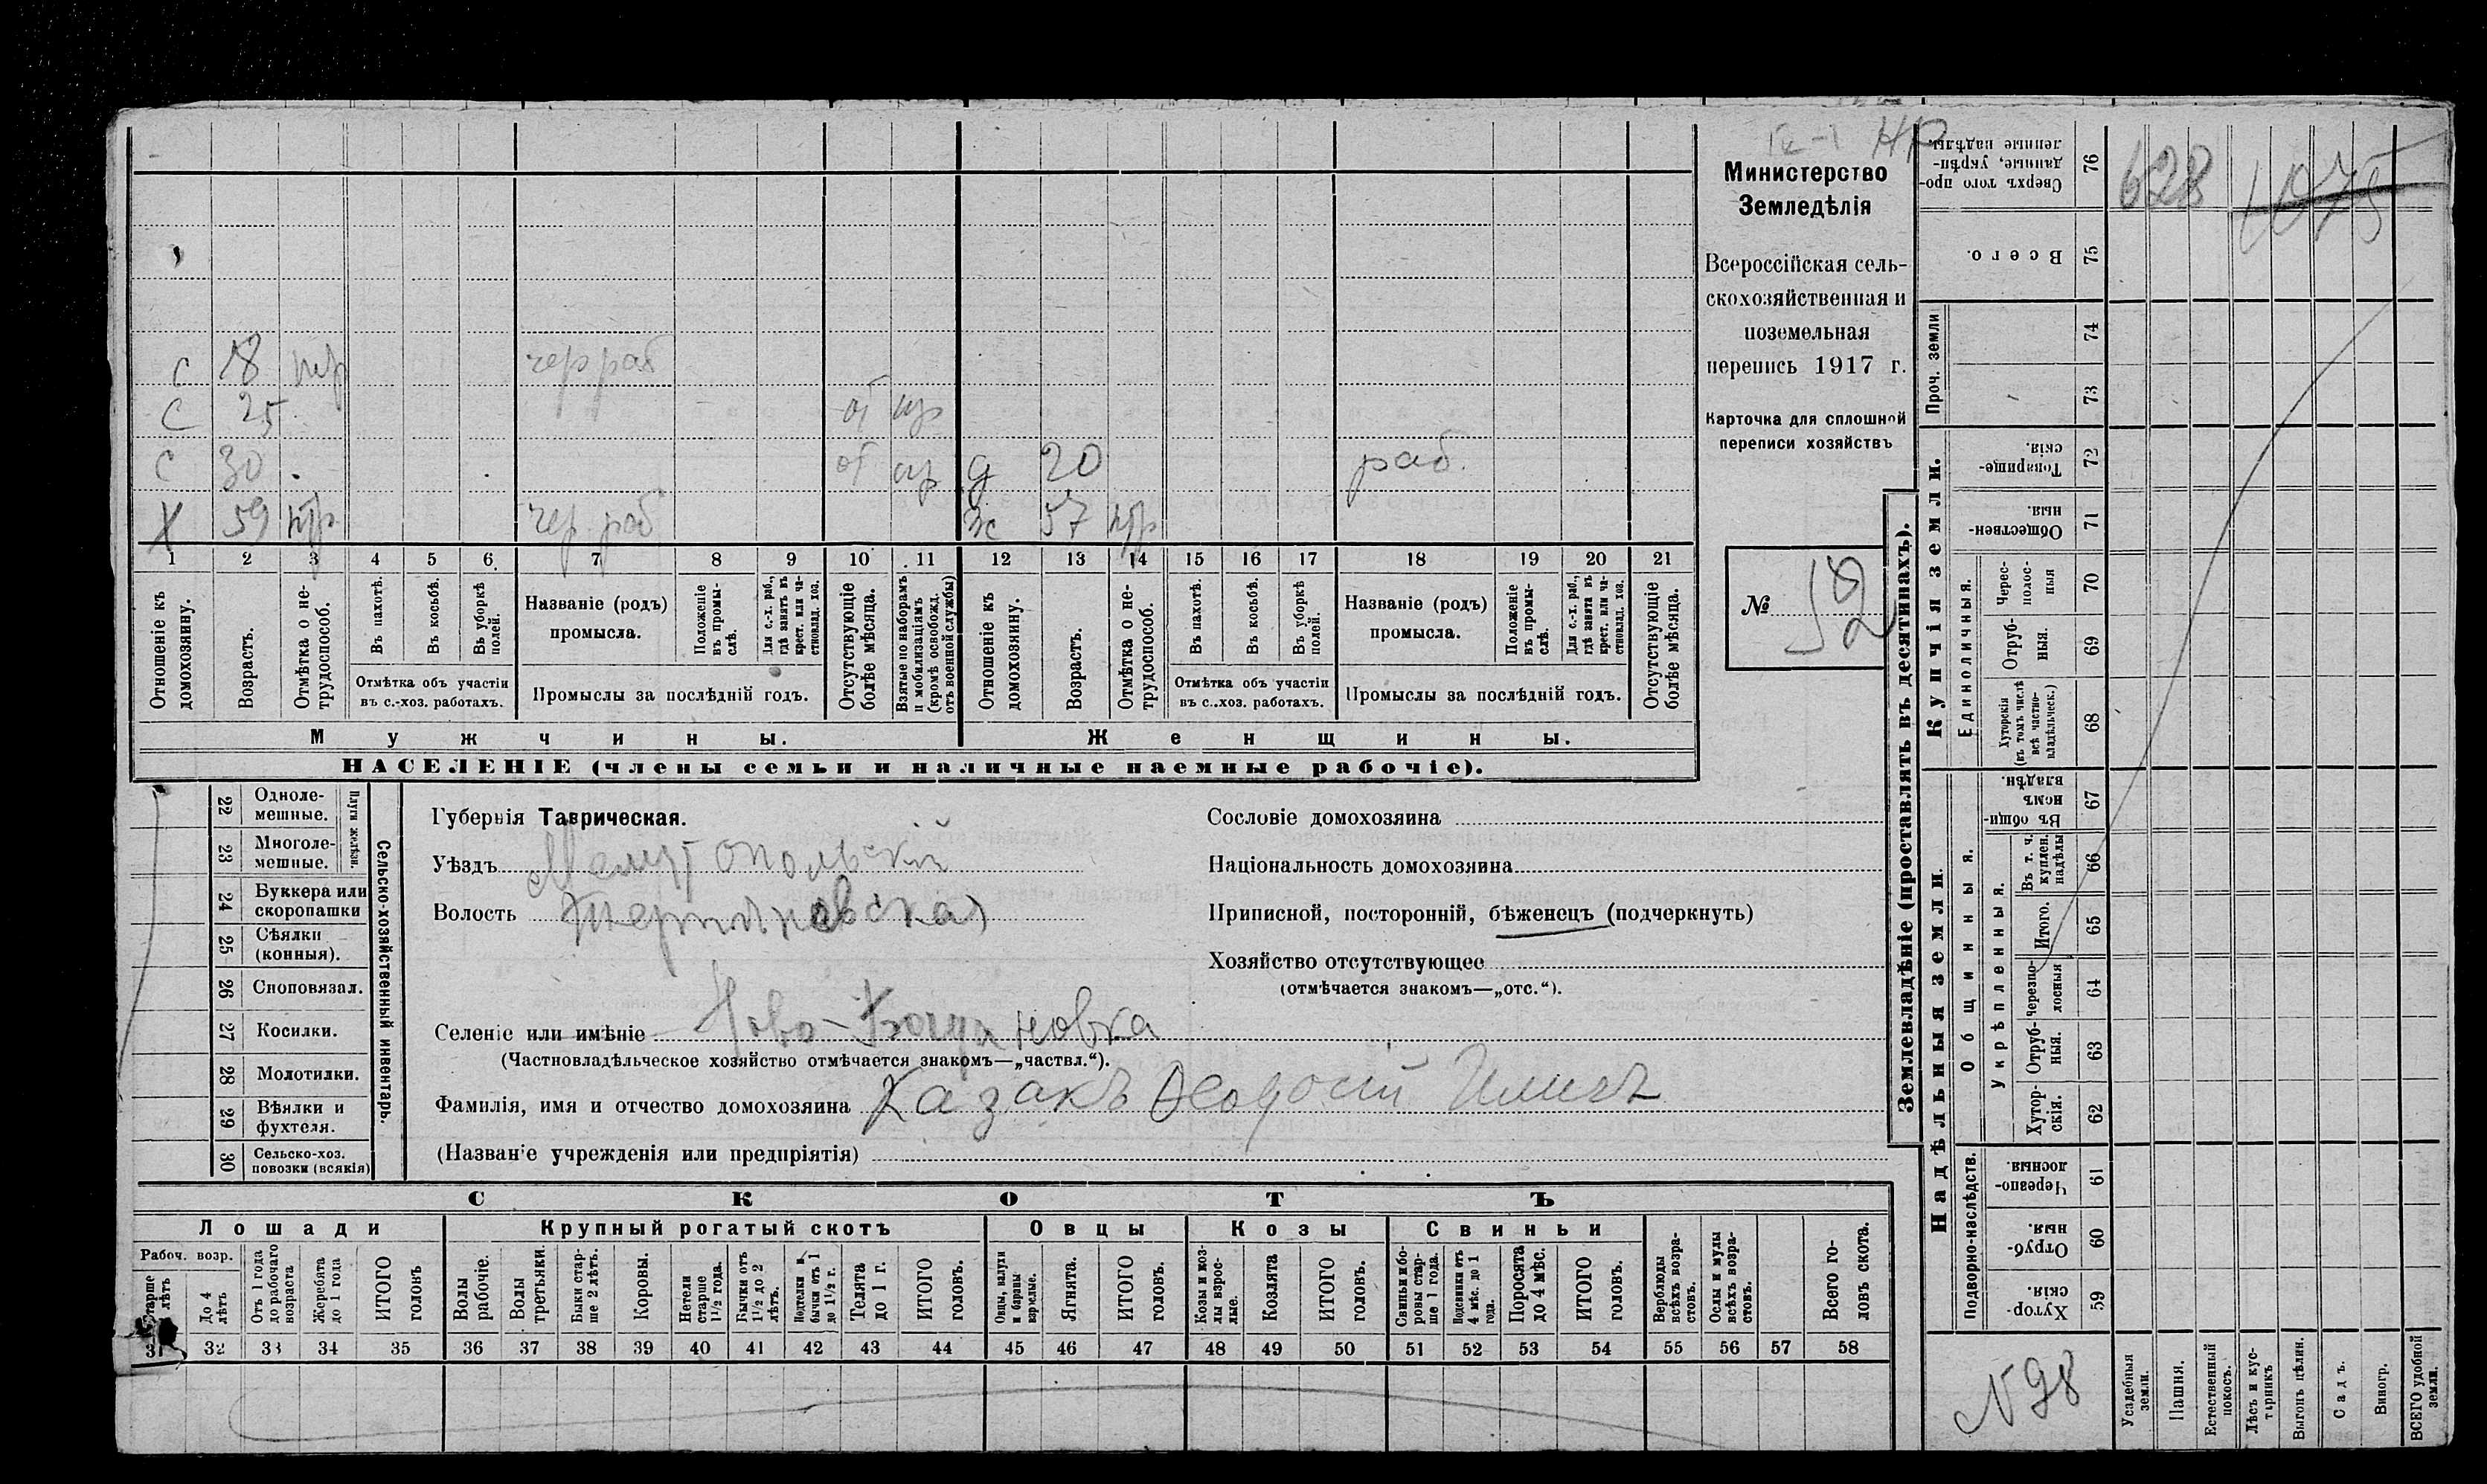 НР
Министерство
Земледѣлія
Всероссійская сель-
скохозяйственная и
поземельная
перепись 1917 г.
Карточка для сплошной
переписи хозяйствъ
№ 52
С 18 нтр чер раб
С 25 от
С 30 от д 20 раб.
Х 59 нтр чер. раб ж 57 нтр
1 2 3 4 5 6 7 8 9 10 11 12 13 14 15 16 17 18 19 20 21
Отношеніе къ домохозяину.
Возрастъ.
Отмѣтка о не-трудоспособ.
Въ пахотѣ.
Въ косьбѣ.
Въ уборкѣ полей.
Отмѣтка объ участіи
въ с.-хоз. работахъ.
Названіе (родъ)
промысла.
Положеніе въ промы-слѣ.
Для с.-х. раб., гдѣ занятъ въ крест. или ча-стновлад. хоз.
Промыслы за послѣдній годъ.
Отсутствующіе болѣе мѣсяца.
Взятые по наборамъ и мобилизаціямъ (кромѣ освобожд. отъ военной службы)
Отношеніе къ домохозяину.
Возрастъ.
Отмѣтка о не-трудоспособ.
Въ пахотѣ.
Въ косьбѣ.
Въ уборкѣ полей.
Отмѣтка объ участіи
въ с.-хоз. работахъ.
Названіе (родъ)
промысла.
Положеніе въ промы-слѣ.
Для с.-х. раб., гдѣ занята въ крест. или ча-стновлад. хоз.
Промыслы за послѣдній годъ.
Отсутствующіе болѣе мѣсяца.
Мужчины. Женщины.
НАСЕЛЕНІЕ (члены семьи и наличные наемные рабочіе).
Сельско-хозяйственный инвентарь.
Плуги желѣзн.
22 Одноле-мешные.
23 Многоле-мешные.
24 Буккера или скоропашки
25 Сѣялки (конныя).
26 Сноповязал.
27 Косилки.
28 Молотилки.
29 Вѣялки и фухтеля.
30 Сельско-хоз. повозки (всякія)
Губернія Таврическая.
Уѣздъ Мелитопольскій
Волость
Селеніе или имѣніе Ново-Богдановка
(Частновладѣльческое хозяйство отмѣчается знакомъ—„частвл.“).
Фамилія, имя и отчество домохозяина Казакъ Ѳеодосій Иличъ
(Названіе учрежденія или предпріятія)
Сословіе домохозяина
Національность домохозяина
Приписной, посторонній, бѣженецъ (подчеркнуть)
Хозяйство отсутствующее
(отмѣчается знакомъ—„отс.“).
СКОТЪ
Лошади Крупный рогатый скотъ Овцы Козы Свиньи
Рабоч. возр.
Старше лѣтъ
До 4 лѣтъ
Отъ 1 года до рабочаго возраста
Жеребята до 1 года
ИТОГО головъ
Волы рабочіе.
Волы третьяки.
Быки стар-ше 2 лѣтъ.
Коровы.
Нетели старше 1½ года.
Бычки отъ 1½ до 2 лѣтъ.
Подтелки и бычки отъ 1 до 1½ г.
Телята до 1 г.
ИТОГО головъ.
Овцы, валухи и бараны взрослые.
Ягнята.
ИТОГО головъ.
Козы и коз-лы взрос-лые.
Козлята
ИТОГО головъ.
Свиньи и бо-ровы стар-ше 1 года.
Подсвинки отъ 4 мѣс. до 1 года.
Поросята до 4 мѣс.
ИТОГО головъ.
Верблюды всѣхъ возра-стовъ.
Ослы и мулы всѣхъ возра-стовъ.
Всего го-ловъ скота.
31 32 33 34 35 36 37 38 39 40 41 42 43 44 45 46 47 48 49 50 51 52 53 54 55 56 57 58
Землевладѣніе (проставлять въ десятинахъ).
Купчія земли.
Надѣльныя земли.
Сверхъ того про-данные, укрѣп-ленные надѣлы. 76
628 1075
Всего. 75
Проч. земли 74 73
Товарище-скія. 72
Обществен-ныя. 71
Единоличныя.
Черес-полос-ныя 70
Отруб-ныя. 69
Хуторскія (въ томъ числѣ всѣ частно-владѣльческ.) 68
Общинныя.
Въ общин-номъ владѣн. 67
Укрѣпленныя.
Въ т. ч. куплен. надѣлы 66
Итого. 65
Черезпо-лосныя 64
Отруб-ныя. 63
Хутор-скія. 62
Подворно-наслѣдств.
Черезпо-лосныя. 61
Отруб-ныя. 60
Хутор-скія. 59
N 98
Усадебныя земли.
Пашня.
Естественный покосъ.
Лѣсъ и кус-тарникъ
Выгонъ цѣлин.
Садъ.
Виногр.
ВСЕГО удобной земли.